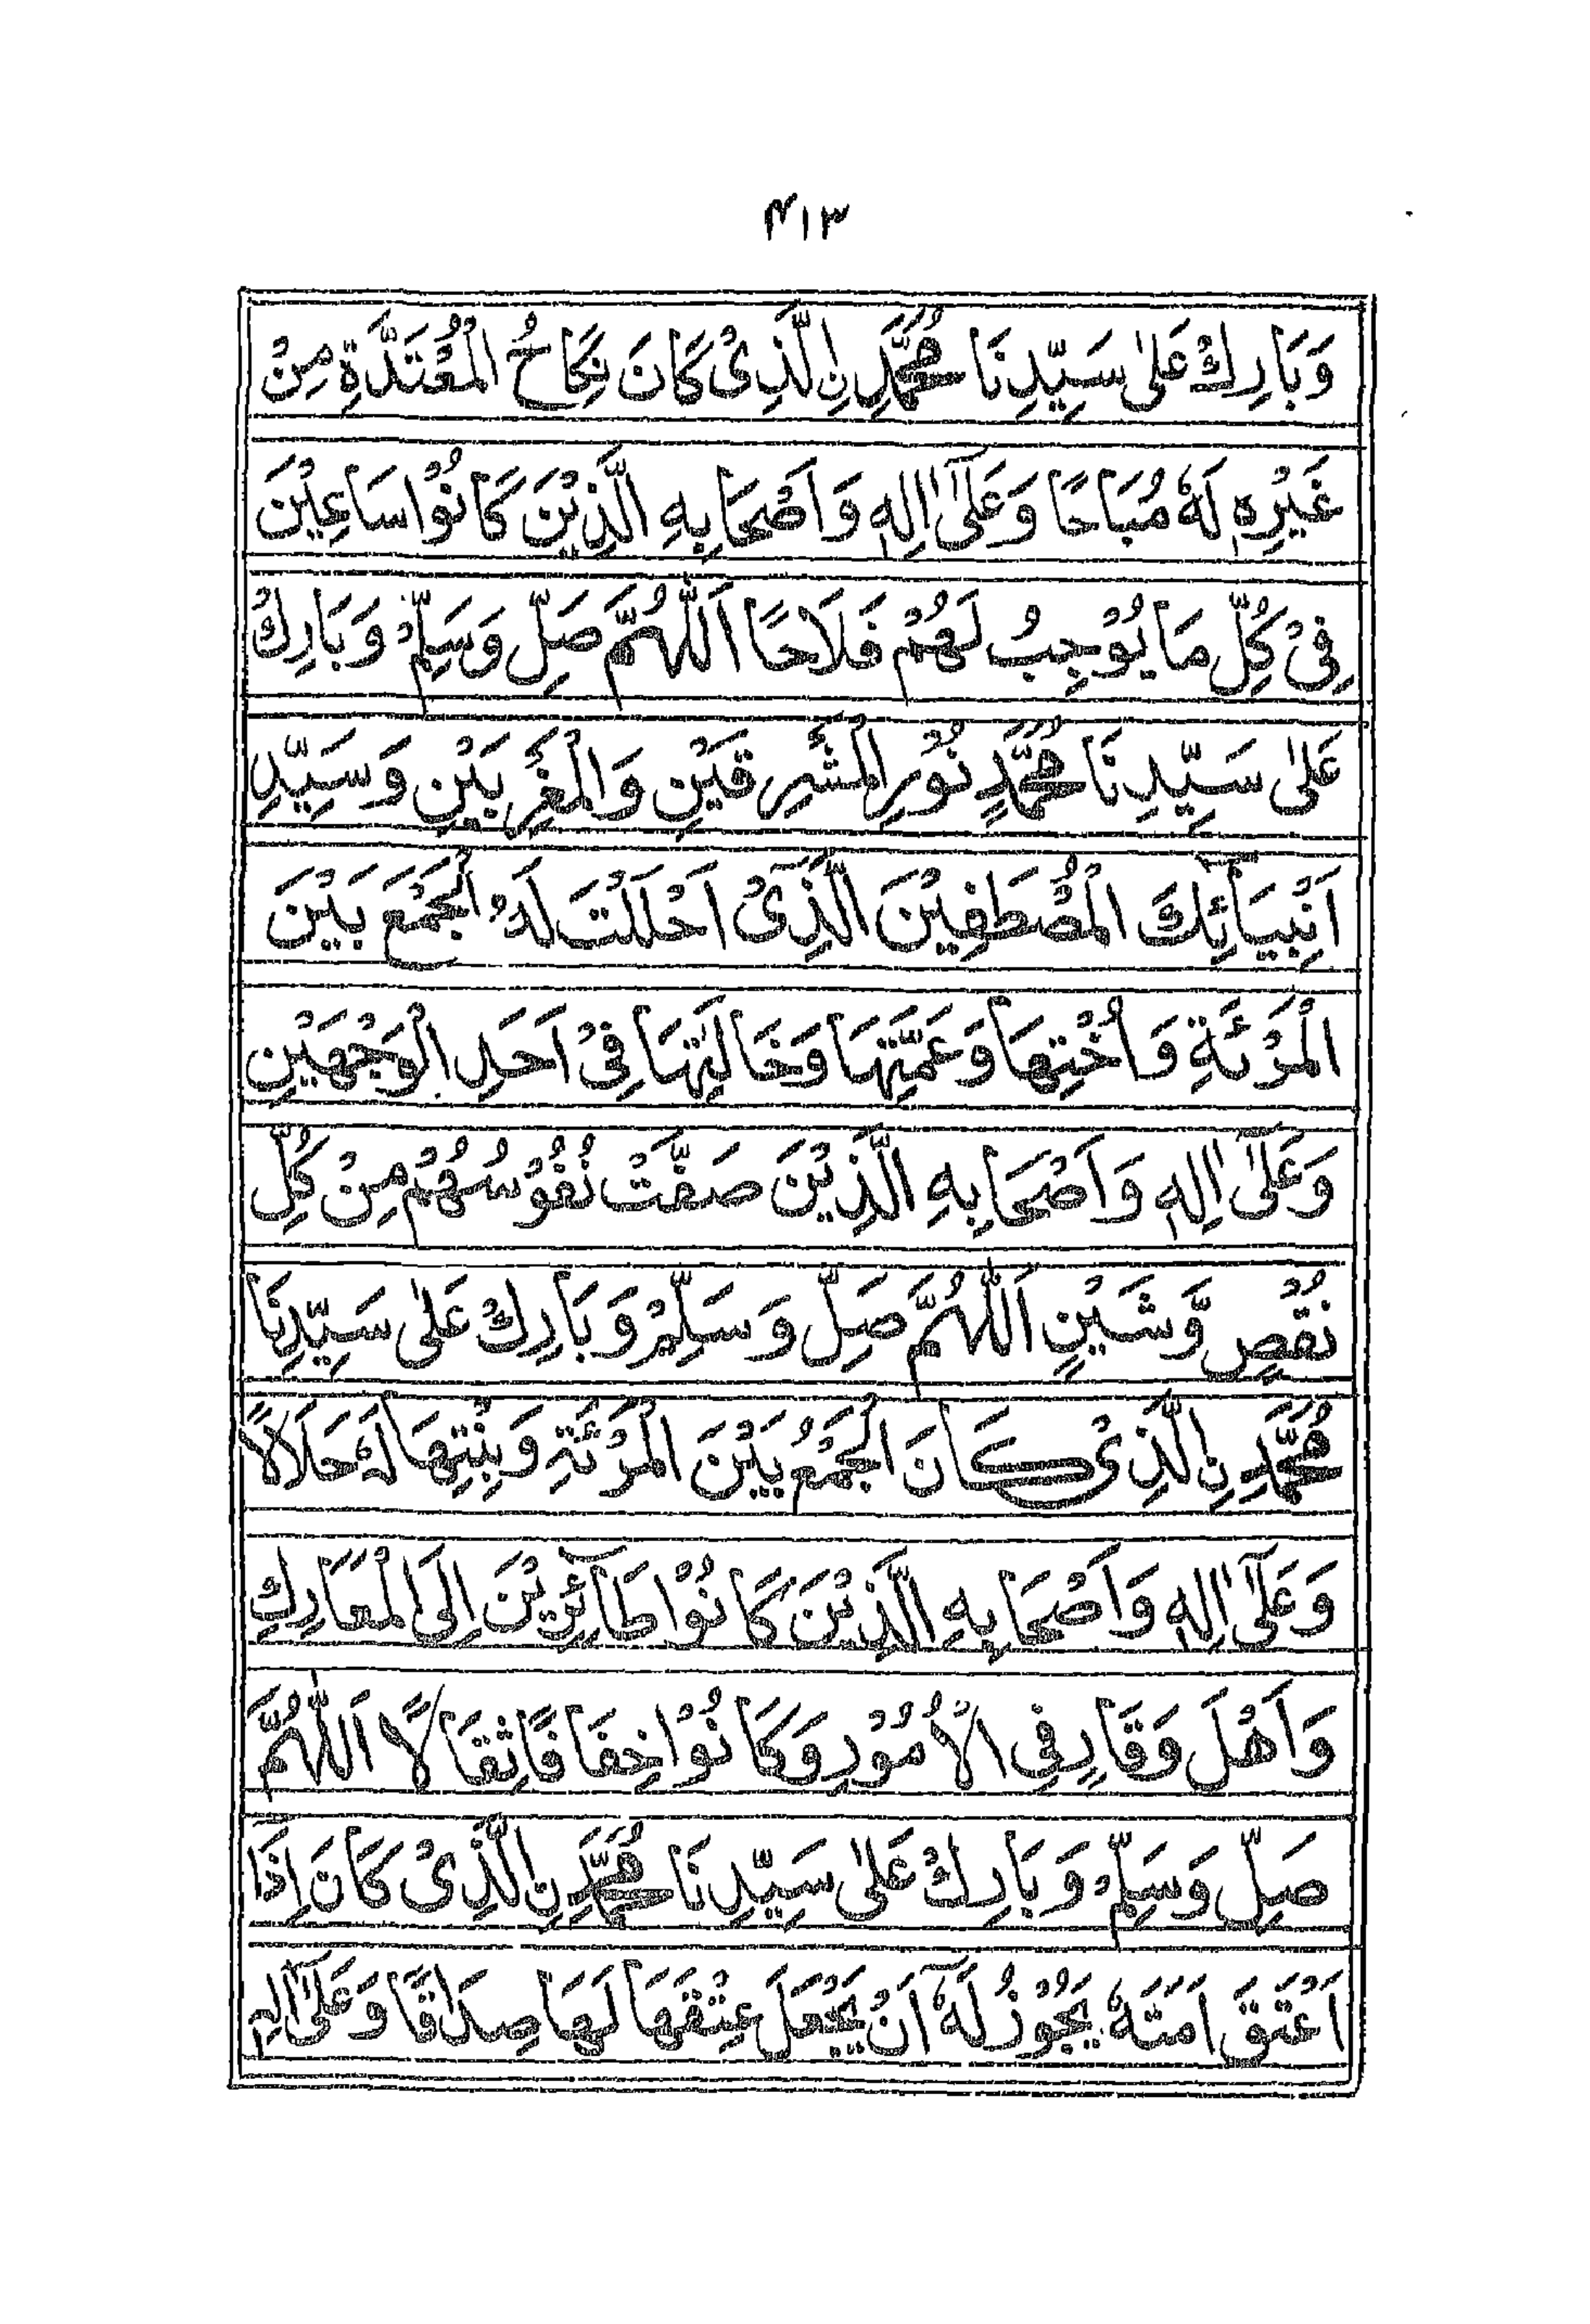 ٤١٣
وَبَارِكْ عَلٰى سَيِّدِنَا مُحَمَّدِ نِ الَّذِىْ كَانَ نِكَاحُ الْمُعْتَدَّةِ مِنْ
غَيْرِهٖ لَهٗ مُبَاحًا وَعَلٰٓى اٰلِهٖ وَاَصْحَابِهِ الَّذِيْنَ كَانُوْا سَاعِيْنَ
فِىْ كُلِّ مَا يُوْجِبُ لَهُمْ فَلَاحًا اَللّٰهُمَّ صَلِّ وَسَلِّمْ وَبَارِكْ
عَلٰى سَيِّدِنَا مُحَمَّدٍ نُوْرِ الْمَشْرِقَيْنِ وَالْمَغْرِبَيْنِ وَسَيِّدِ
اَنْبِيَآئِكَ الْمُصْطَفِيْنَ الَّذِىْٓ اَحْلَلْتَ لَهُ الْجَمْعَ بَيْنَ
الْمَرْئَةِ وَاُخْتِهَا وَعَمَّتِهَا وَخَالَتِهَا فِىْ اَحَدِ الْوَجْهَيْنِ
وَعَلٰٓى اٰلِهٖ وَاَصْحَابِهِ الَّذِيْنَ صَفَّتْ نُفُوْسُهُمْ مِنْ كُلِّ
نَقْصٍ وَّشَيْنٍ اَللّٰهُمَّ صَلِّ وَسَلِّمْ وَبَارِكْ عَلٰى سَيِّدِنَا
مُحَمَّدِ نِ الَّذِىْ كَانَ الْجَمْعُ بَيْنَ الْمَرْئَةِ وَبِنْتِهَا لَهٗ حَلَالًا
وَعَلٰٓى اٰلِهٖ وَاَصْحَابِهِ الَّذِيْنَ كَانُوْا طَآئِرِيْنَ اِلَى الْمَعَارِكِ
وَاَهْلَ وَقَارٍ فِى الْاُمُوْرِ وَكَانُوْا خِفَافًا ثِقَالًا اَللّٰهُمَّ
صَلِّ وَسَلِّمْ وَبَارِكْ عَلٰى سَيِّدِنَا مُحَمَّدِ نِ الَّذِىْ كَانَ اِذَا
اَعْتَقَ اَمَتَهٗ يَجُوْزُ لَهٗٓ اَنْ يَّجْعَلَ عِتْقَهَا لَهَا صِدَاقًا وَعَلٰٓى اٰلِهٖ